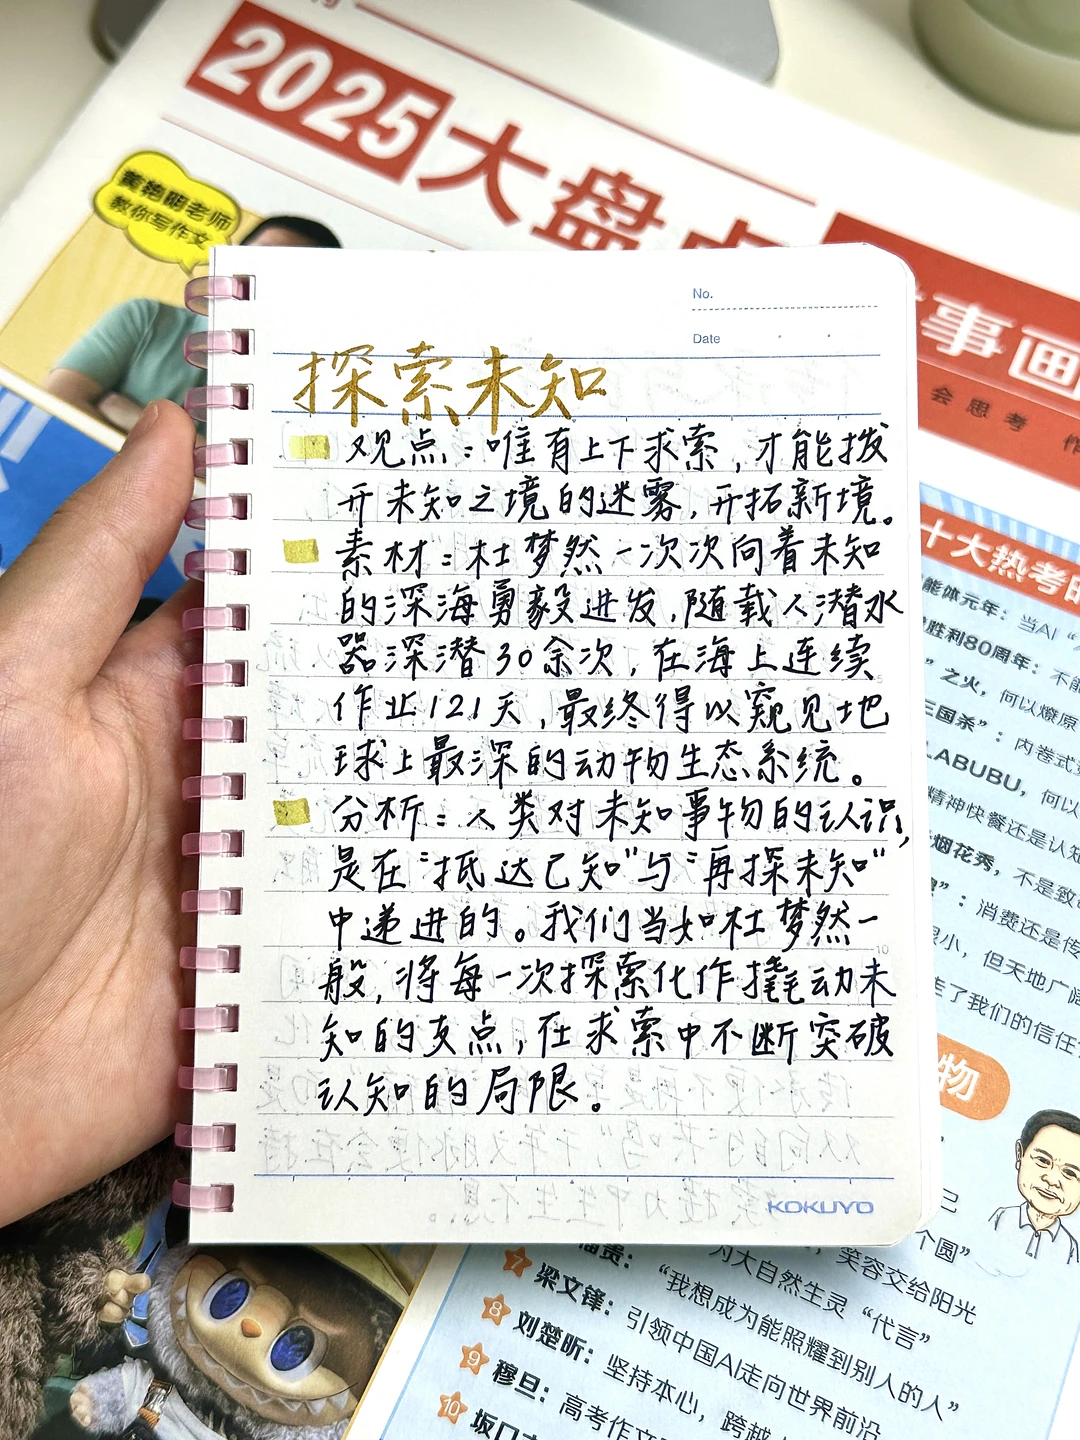 2025大盘点
黄艳明老师
教你写作文
事画
会思考 作
No.
Date
探索未知
观点：唯有上下求索，才能拨
开未知之境的迷雾，开拓新境。
素材：杜梦然一次次向着未知
的深海勇毅进发，随载人潜水
器深潜30余次，在海上连续
作业121天，最终得以窥见地
球上最深的动物生态系统。
分析：人类对未知事物的认识，
是在“抵达已知”与“再探未知”
中递进的。我们当如杜梦然一
般，将每一次探索化作撬动未
知的支点，在求索中不断突破
认知的局限。
10
KOKUYO
十大热考时
能体元年：当AI“
胜利80周年：不能
”之火，何以燎原
三国杀”：内卷式竞
LABUBU，何以
精神快餐还是认知
烟花秀，不是致敬
”：消费还是传
很小，但天地广阔
走了我们的信任
物
己
个圆”
笑容交给阳光
为大自然生灵“代言”
7 梁文锋：“我想成为能照耀到别人的人”
8 刘楚昕：引领中国AI走向世界前沿
9 穆旦：坚持本心，跨越
10 坂口 高考作文